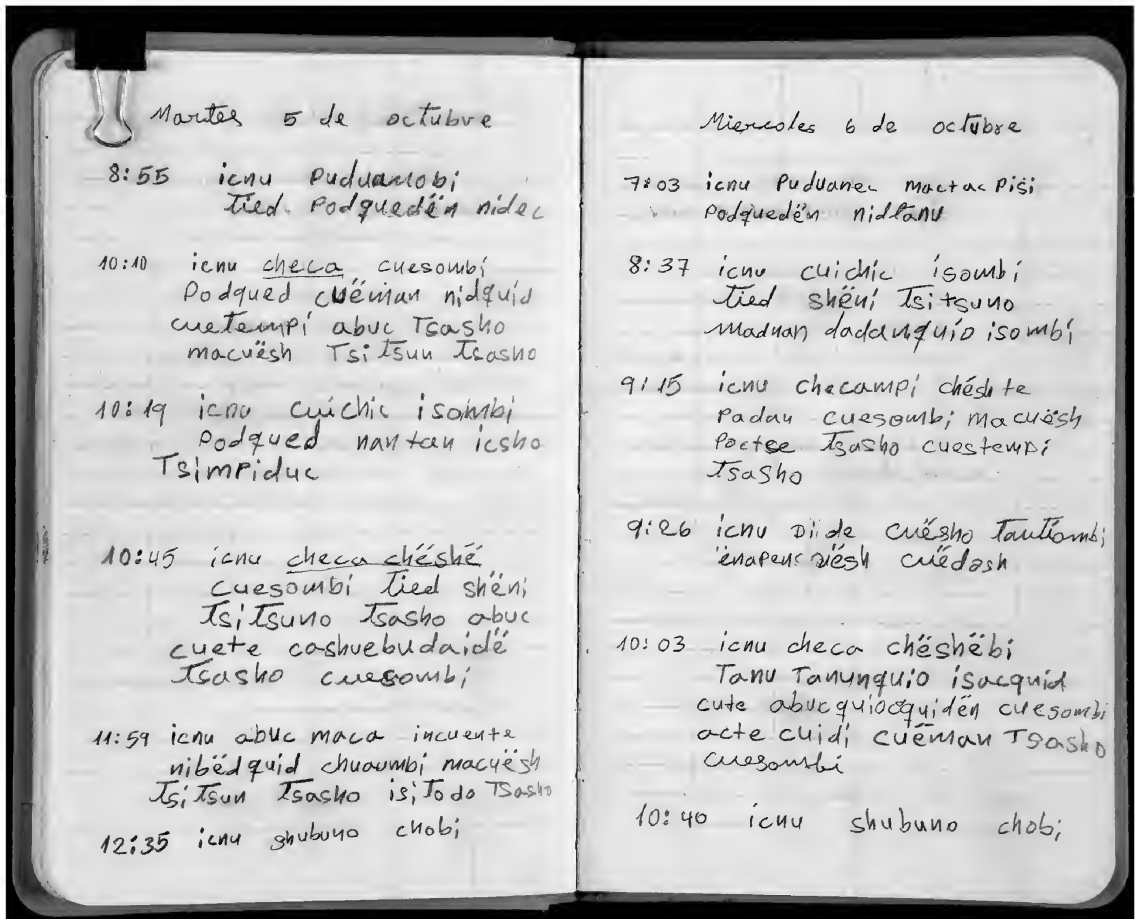 Martes 5 de octubre
8:55 icnu Puduanobi
tied. Podquedën nidec
10:10 icnu checa cuesombi
Podqued cuëman nidquid
cuetempi abuc Tsasho
macuësh Tsitsun Tsasho
10:19 icnu cuichic isombi
Podqued nantan icsho
Tsimpiduc
10:45 icnu checa chëshë
cuesombi tied shëni
Tsitsuno Tsasho abuc
cuete cashuebudaidë
Tsasho cuesombi
11:59 icnu abuc maca incuente
nibëdquid chuaumbi macuësh
Tsitsun Tsasho isiTodo Tsasho
12:35 icnu shubuno chobi
Miercoles 6 de octubre
7:03 icnu Puduanec mactac Pisi
Podquedën nidtanu
8:37 icnu cuichic isombi
tied shëni Tsitsuno
Maduan dadanquio isombi
9:15 icnu checampi chéshte
Padan cuesombi macuësh
Poctse Tsasho cuestempi
Tsasho
9:26 icnu Diide cuësho Tautiombi
cuëdash
10:03 icnu checa chëshëbi
Tanu Tanunquio isacquid
cute abucquiocquidën cuesombi
acte cuidi cuëman Tsasho
cuesombi
10:40 icnu shubuno chobi